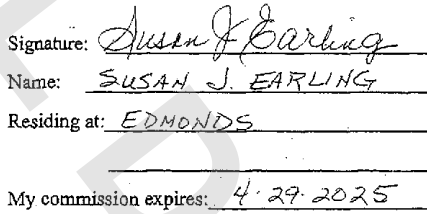 Signature: Susan J Earling
Name: SUSAN J. EARLING
Residing at: EDMONDS
My commission expires: 4.29.2025